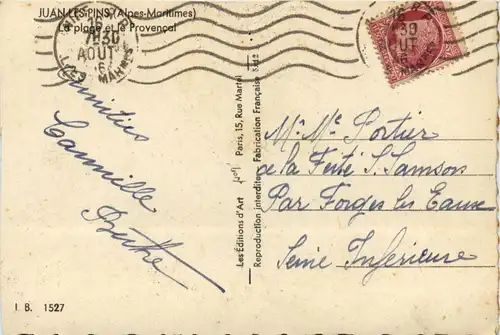 JUAN LES PINS (Alpes-Maritimes)
La plage et le Provençal
7H30
AOUT
Amitiés
Cammille
Berthe
Les Editions d'Art
Paris, 15, Rue Martel
Reproduction interdite
Fabrication Française
Mr Me Portier
de la Ferté S. Samson
Par Forges les Eaux
Seine Inférieure
I B. 1527